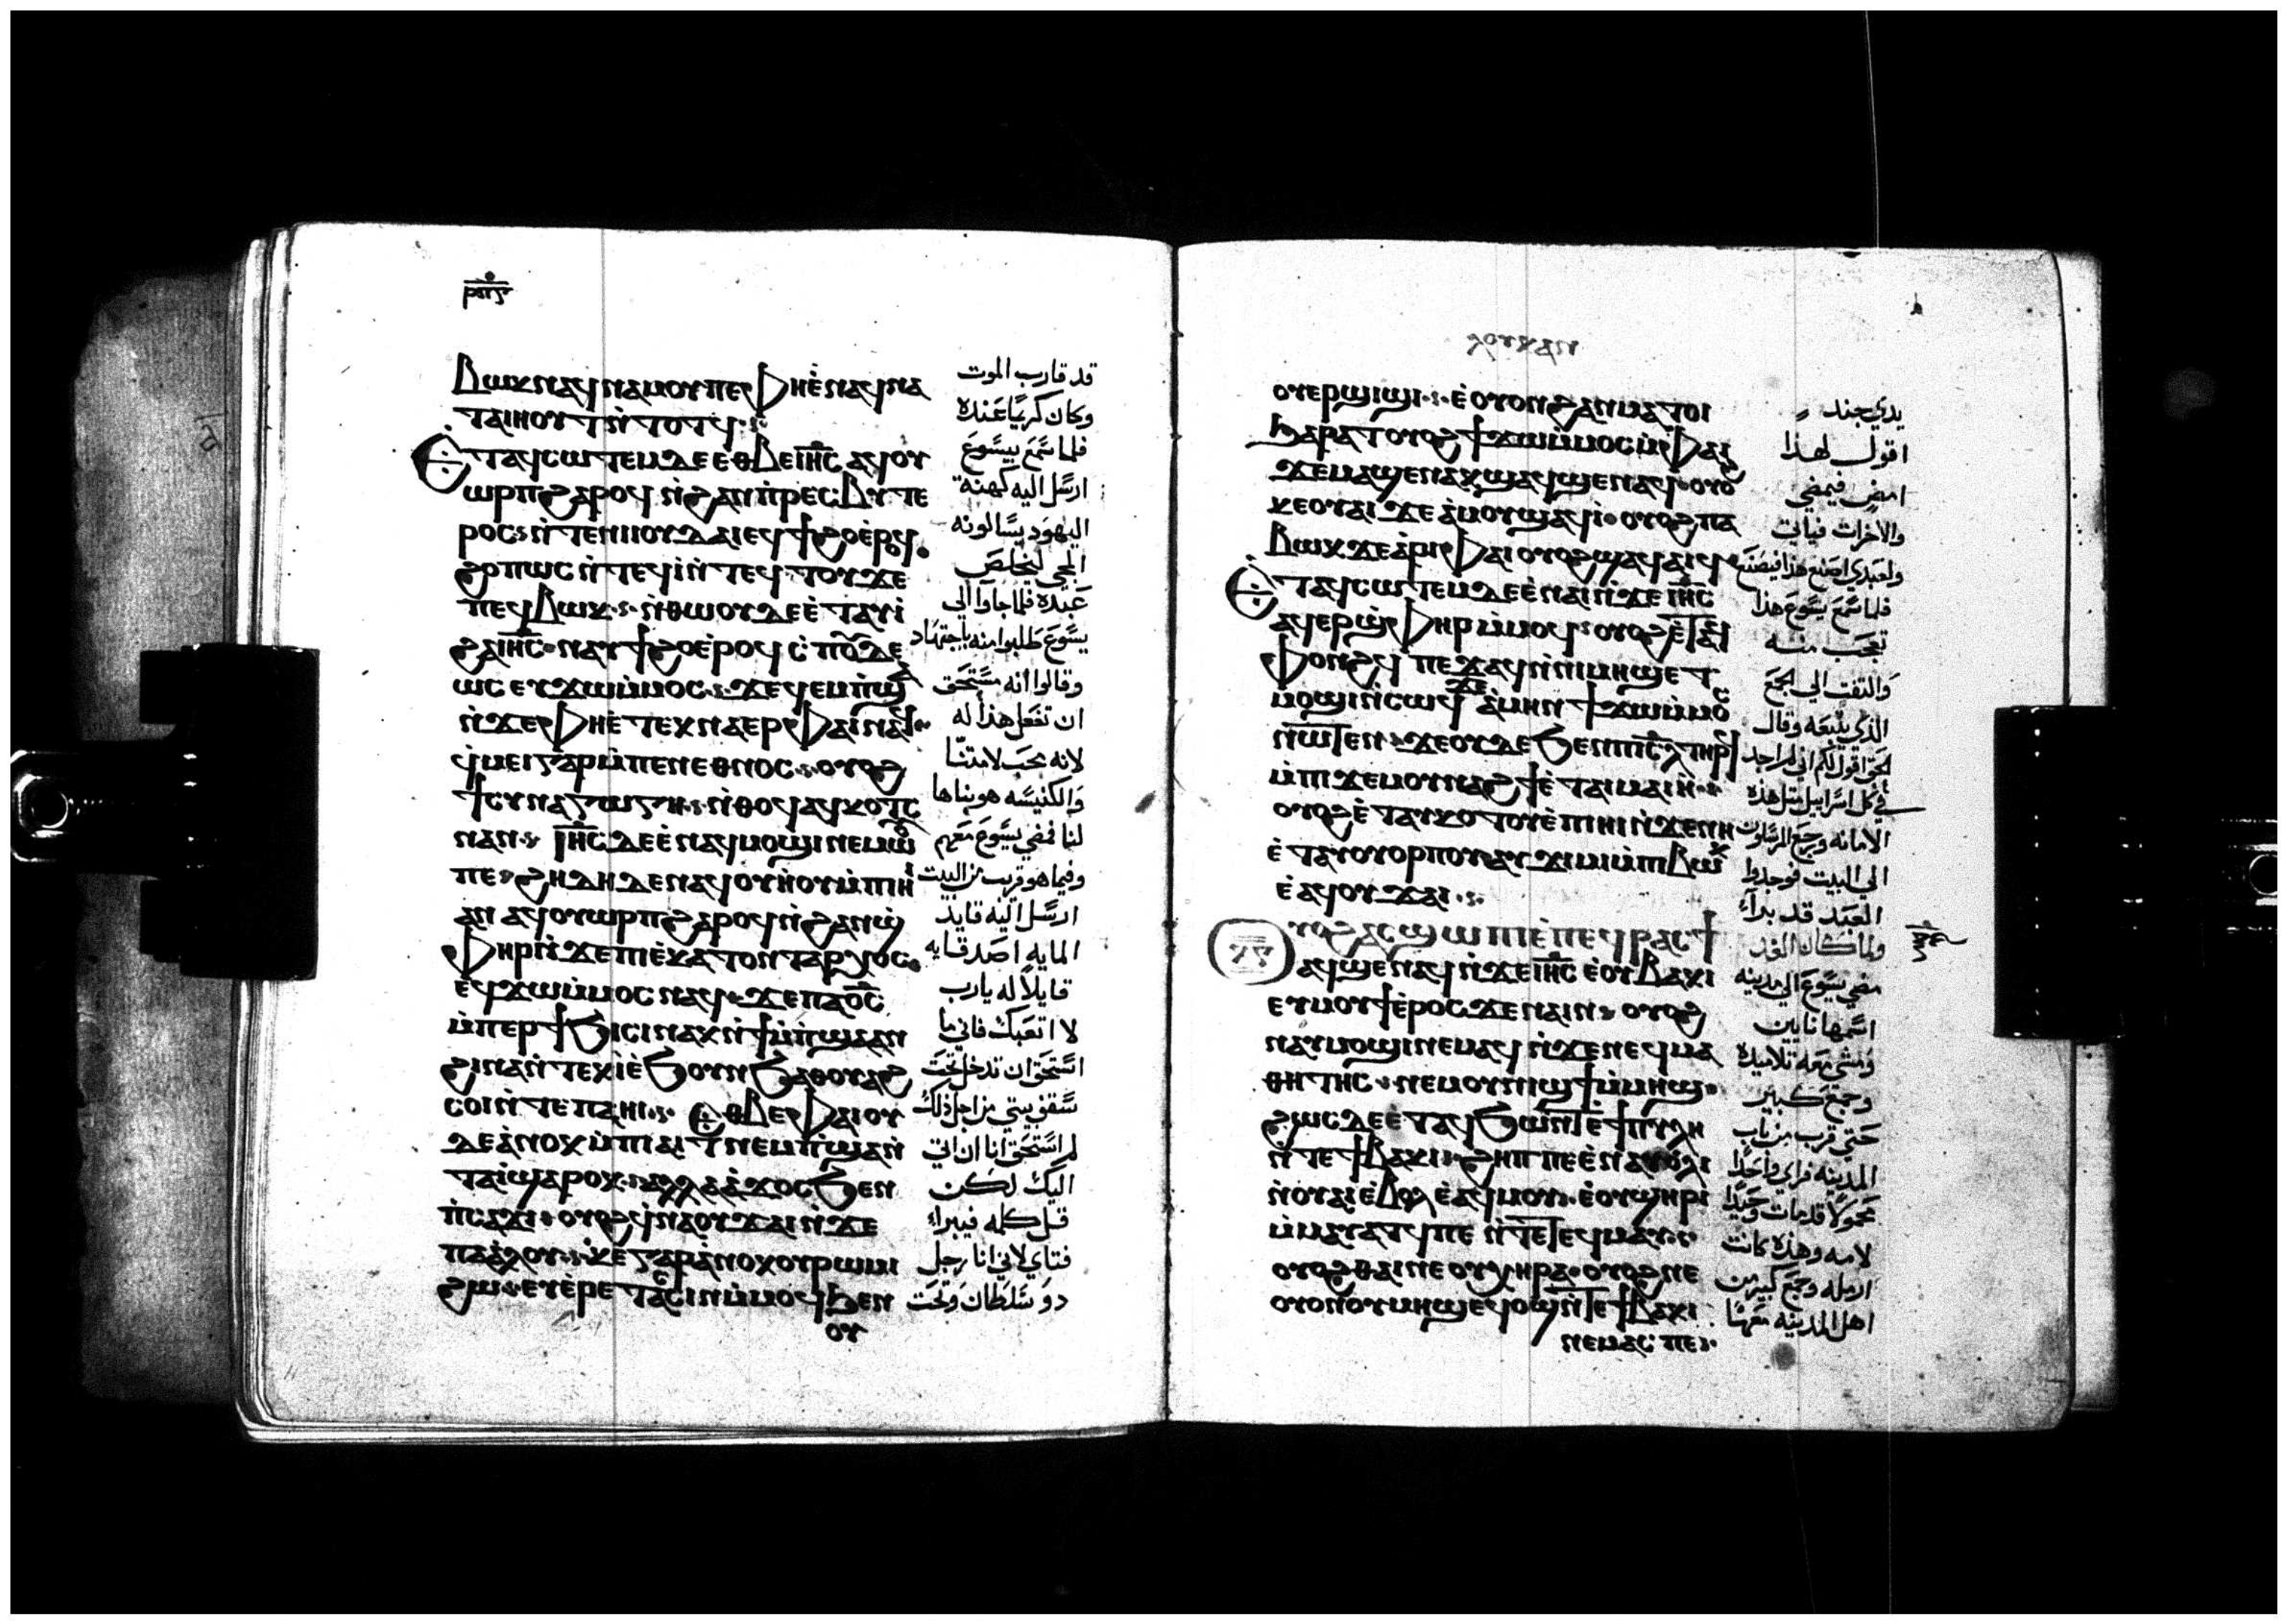 ⲣⲟⲋ
ⲃⲱⲕ ⲛⲁϥⲛⲁⲙⲟⲩ ⲡⲉ ⲫⲏⲉ̀ⲛⲁϥⲛⲁ
ⲧⲁⲓⲏⲟⲩⲧ ⲛ̀ⲧⲟⲧϥ
ⲉ̀ⲧⲁϥⲥⲱⲧⲉⲙ ⲇⲉ ⲉⲑⲃⲉ ⲓⲏ̅ⲥ̅ ⲁϥⲟⲩ
ⲱⲣⲡ ϩⲁⲣⲟϥ ⲛ̀ϩⲁⲛⲡ̀ⲣⲉⲥⲃⲩⲧⲉ
ⲣⲟⲥ ⲛ̀ⲧⲉ ⲛⲓⲓⲟⲩⲇⲁⲓ ⲉϥϯϩⲟ ⲉ̀ⲣⲟϥ
ϩⲟⲡⲱⲥ ⲛ̀ⲧⲉϥⲓ̀ ⲛ̀ⲧⲉϥⲧⲟⲩϫⲉ
ⲡⲉϥⲃⲱⲕ ⲛ̀ⲑⲱⲟⲩ ⲇⲉ ⲉ̀ⲧⲁⲩⲓ̀
ϩⲁ ⲓⲏ̅ⲥ̅ ⲛⲁⲩϯϩⲟ ⲉ̀ⲣⲟϥ ⲥ̀ⲡⲟⲩⲇⲉ
ⲱⲥ ⲉⲩϫⲱ ⲙ̀ⲙⲟⲥ ϫⲉ ϥⲉⲙⲡ̀ϣⲁ
ⲛ̀ϫⲉ ⲫⲏⲉ̀ⲧⲉⲕⲛⲁⲉⲣ ⲫⲁⲓ ⲛⲁϥ
ϥ̀ⲙⲉⲓ ⲅⲁⲣ ⲙ̀ⲡⲉⲛⲉⲑⲛⲟⲥ ⲟⲩⲟϩ
ϯⲥⲩⲛⲁⲅⲱⲅⲏ ⲛ̀ⲑⲟϥ ⲁϥⲕⲟⲧⲥ
ⲛⲁⲛ ⲓⲏ̅ⲥ̅ ⲇⲉ ⲉ̀ⲛⲁϥⲙⲟϣⲓ ⲛⲉⲙⲱⲟⲩ
ⲡⲉ ϩⲏⲇⲏ ⲇⲉ ⲛⲁϥⲟⲩⲏⲟⲩ ⲙ̀ⲡⲓⲏⲓ
ⲁⲛ ⲁϥⲟⲩⲱⲣⲡ ϩⲁⲣⲟϥ ⲛ̀ϩⲁⲛϣ̀
ⲫⲏⲣ ⲛ̀ϫⲉ ⲡⲓⲉ̀ⲕⲁⲧⲟⲛⲧⲁⲣⲭⲟⲥ
ⲉϥϫⲱ ⲙ̀ⲙⲟⲥ ⲛⲁϥ ϫⲉ ⲡⲁⲟ̅ⲥ̅
ⲙ̀ⲡⲉⲣϯϧⲓⲥⲓ ⲛⲁⲕ ⲛ̀ϯⲙ̀ⲡ̀ϣⲁ ⲁⲛ
ϩⲓⲛⲁ ⲛ̀ⲧⲉⲕⲓ̀ ⲉ̀ϧⲟⲩⲛ ϧⲁ ⲑⲟⲩⲁϩ
ⲥⲟⲓ ⲛ̀ⲧⲉ ⲡⲁⲏⲓ ⲉⲑⲃⲉ ⲫⲁⲓ ⲟⲩ
ⲇⲉ ⲁ̀ⲛⲟⲕ ⲙ̀ⲡⲓⲁⲓⲧ ⲛⲉⲙⲡ̀ϣⲁ ⲛ̀
ⲧⲁⲓ̀ ϣⲁⲣⲟⲕ ⲁⲗⲗⲁ ⲁ̀ϫⲟⲥ ϧⲉⲛ
ⲡ̀ⲥⲁϫⲓ ⲟⲩⲟϩ ϥ̀ⲛⲁⲟⲩϫⲁⲓ ⲛ̀ϫⲉ
ⲡⲁⲁ̀ⲗⲟⲩ ⲕⲉ ⲅⲁⲣ ⲁ̀ⲛⲟⲕ ⲟⲩⲣⲱⲙⲓ
ϩⲱ ⲉⲩⲉ̀ⲣⲉⲧⲁⲥⲓⲛ ⲙ̀ⲙⲟϥ ϧⲉⲛ
ⲟⲩ
قد قارب الموت
وكان كريمًا عنده
فلما سمع بيسوع
ارسل اليه كهنة
اليهود يسالونه
المجى ليخلص
عبده فلما جاوا الى
يسوع طلبوا منه باجتهاد
وقالوا انه مستحق
ان تفعل هذا له
لانه محب لامتنا
والكنيسه هو بناها
لنا فمضى يسوع معهم
وفيما هو قريب من البيت
ارسل اليه قايد
المايه اصدقايه
قايلاً له يارب
لا اتعبك فانى ما
استحق ان تدخل تحت
سقف بيتي من اجل ذلك
لم استحق انا ان اتى
اليك لكن
قل كلمه فيبراء
فتاي لانى انا رجل
ذو سلطان وتحت
ⲗⲟⲩⲕⲁⲛ
ⲟⲩⲉⲣϣⲓϣⲓ ⲉ̀ⲟⲩⲟⲛ ϩⲁⲛⲙⲁⲧⲟⲓ
ϧⲁⲣⲁⲧ ⲟⲩⲟϩ ϯϫⲱ ⲙ̀ⲙⲟⲥ ⲙ̀ⲫⲁⲓ
ϫⲉ ⲙⲁϣⲉⲛⲁⲕ ϣⲁϥϣⲉⲛⲁϥ ⲟⲩⲟϩ
ⲕⲉⲟⲩⲁⲓ ϫⲉ ⲁ̀ⲙⲟⲩ ϣⲁϥⲓ̀ ⲟⲩⲟϩ ⲡⲁ
ⲃⲱⲕ ϫⲉ ⲁ̀ⲣⲓ ⲫⲁⲓ ⲟⲩⲟϩ ϣⲁϥⲁⲓϥ
ⲉ̀ⲧⲁϥⲥⲱⲧⲉⲙ ⲇⲉ ⲉ̀ⲛⲁⲓ ⲛ̀ϫⲉ ⲓⲏ̅ⲥ̅
ⲁϥⲉⲣϣ̀ⲫⲏⲣⲓ ⲙ̀ⲙⲟϥ ⲟⲩⲟϩ ⲉ̀ⲧⲁϥ
ⲫⲟⲛϩϥ ⲡⲉϫⲁϥ ⲙ̀ⲡⲓⲙⲏϣ ⲉⲧ
ⲙⲟϣⲓ ⲛ̀ⲥⲱϥ ϫⲉ ⲁ̀ⲙⲏⲛ ϯϫⲱ ⲙ̀ⲙⲟⲥ
ⲛⲱⲧⲉⲛ ϫⲉ ⲟⲩⲇⲉ ϧⲉⲛ ⲡⲓⲥ̅ⲗ̅ ⲧⲏⲣϥ
ⲙ̀ⲡⲓϫⲉⲙ ⲟⲩⲛⲁϩϯ ⲉ̀ⲧⲁⲓⲙⲁⲓⲏ
ⲟⲩⲟϩ ⲉ̀ⲧⲁⲩⲕⲟⲧⲟⲩ ⲉ̀ⲡⲓⲏⲓ ⲛ̀ϫⲉ ⲛⲏ
ⲉ̀ⲧⲁⲩⲟⲩⲟⲣⲡⲟⲩ ⲁⲩϫⲓⲙⲓ ⲙ̀ⲡⲓⲃⲱⲕ
ⲉ̀ⲁϥⲟⲩϫⲁⲓ
ⲩⲟϩ ⲁⲥϣⲱⲡⲓ ⲉ̀ⲡⲉϥⲣⲁⲥϯ
ⲁϥϣⲉⲛⲁϥ ⲛ̀ϫⲉ ⲓⲏ̅ⲥ̅ ⲉ̀ⲟⲩⲃⲁⲕⲓ
ⲉⲩⲙⲟⲩϯ ⲉ̀ⲣⲟⲥ ϫⲉ ⲛⲁⲓⲛ ⲟⲩⲟϩ
ⲛⲁⲩⲙⲟϣⲓ ⲛⲉⲙⲁϥ ⲛ̀ϫⲉ ⲛⲉϥⲙⲁ
ⲑⲏⲧⲏⲥ ⲛⲉⲙ ⲟⲩⲛⲓϣϯ ⲙ̀ⲙⲏϣ
ϩⲱⲥ ⲇⲉ ⲉ̀ⲧⲁϥϧⲱⲛⲧ ⲉ̀ϯⲡⲩⲗⲏ
ⲛ̀ⲧⲉ ϯⲃⲁⲕⲓ ϩⲏⲡⲡⲉ ⲉ̀ⲛⲁⲩⲱ̀ⲗⲓ
ⲛ̀ⲟⲩⲁⲓ ⲉ̀ⲃⲟⲗ ⲉ̀ⲁϥⲙⲟⲩ ⲉ̀ⲟⲩϣⲏⲣⲓ
ⲙ̀ⲙⲁⲩⲁⲧϥ ⲡⲉ ⲛ̀ⲧⲉ ⲧⲉϥⲙⲁⲩ
ⲟⲩⲟϩ ⲑⲁⲓ ⲛⲉ ⲟⲩⲭⲏⲣⲁ ⲟⲩⲟϩ ⲛⲉ
ⲟⲩⲟⲛ ⲟⲩⲙⲏϣ ⲉϥⲟϣ ⲛ̀ⲧⲉ ϯⲃⲁⲕⲓ
ⲛⲉⲙⲁⲥ ⲡⲉ
يدي جند
اقول لهذا
امض فيمضي
والاخر ات فياتي
ولعبدي اصنع هذا فيصنع
فلما سمع يسوع هذا
تعجب منه
والتفت الى الجمع
الذي يتبعه وقال
الحق اقول لكم انى لم اجد
في كل اسراييل مثل هذه
الامانه ورجع المرسلون
الى البيت فوجدوا
العبد قد براء
ولما كان الغد
مضى يسوع الى مدينه
اسمها نايين
ومشى معه تلاميذه
وجمع كبير
حتى قرب من باب
المدينه فراى واحدًا
محمولاً قد مات وحيدًا
لامه وهذه كانت
ارمله وجمع كبير من
اهل المدينه معها